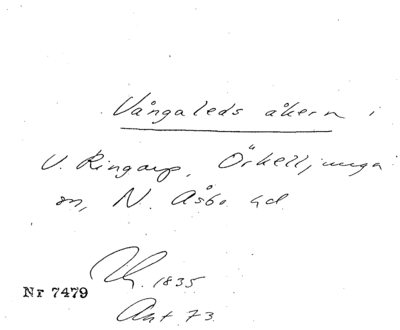 Vångaleds åkern i
V. Ringarp, Örkelljunga
sn, N. Åsbo hd
1835
Nr 7479
Akt 73.